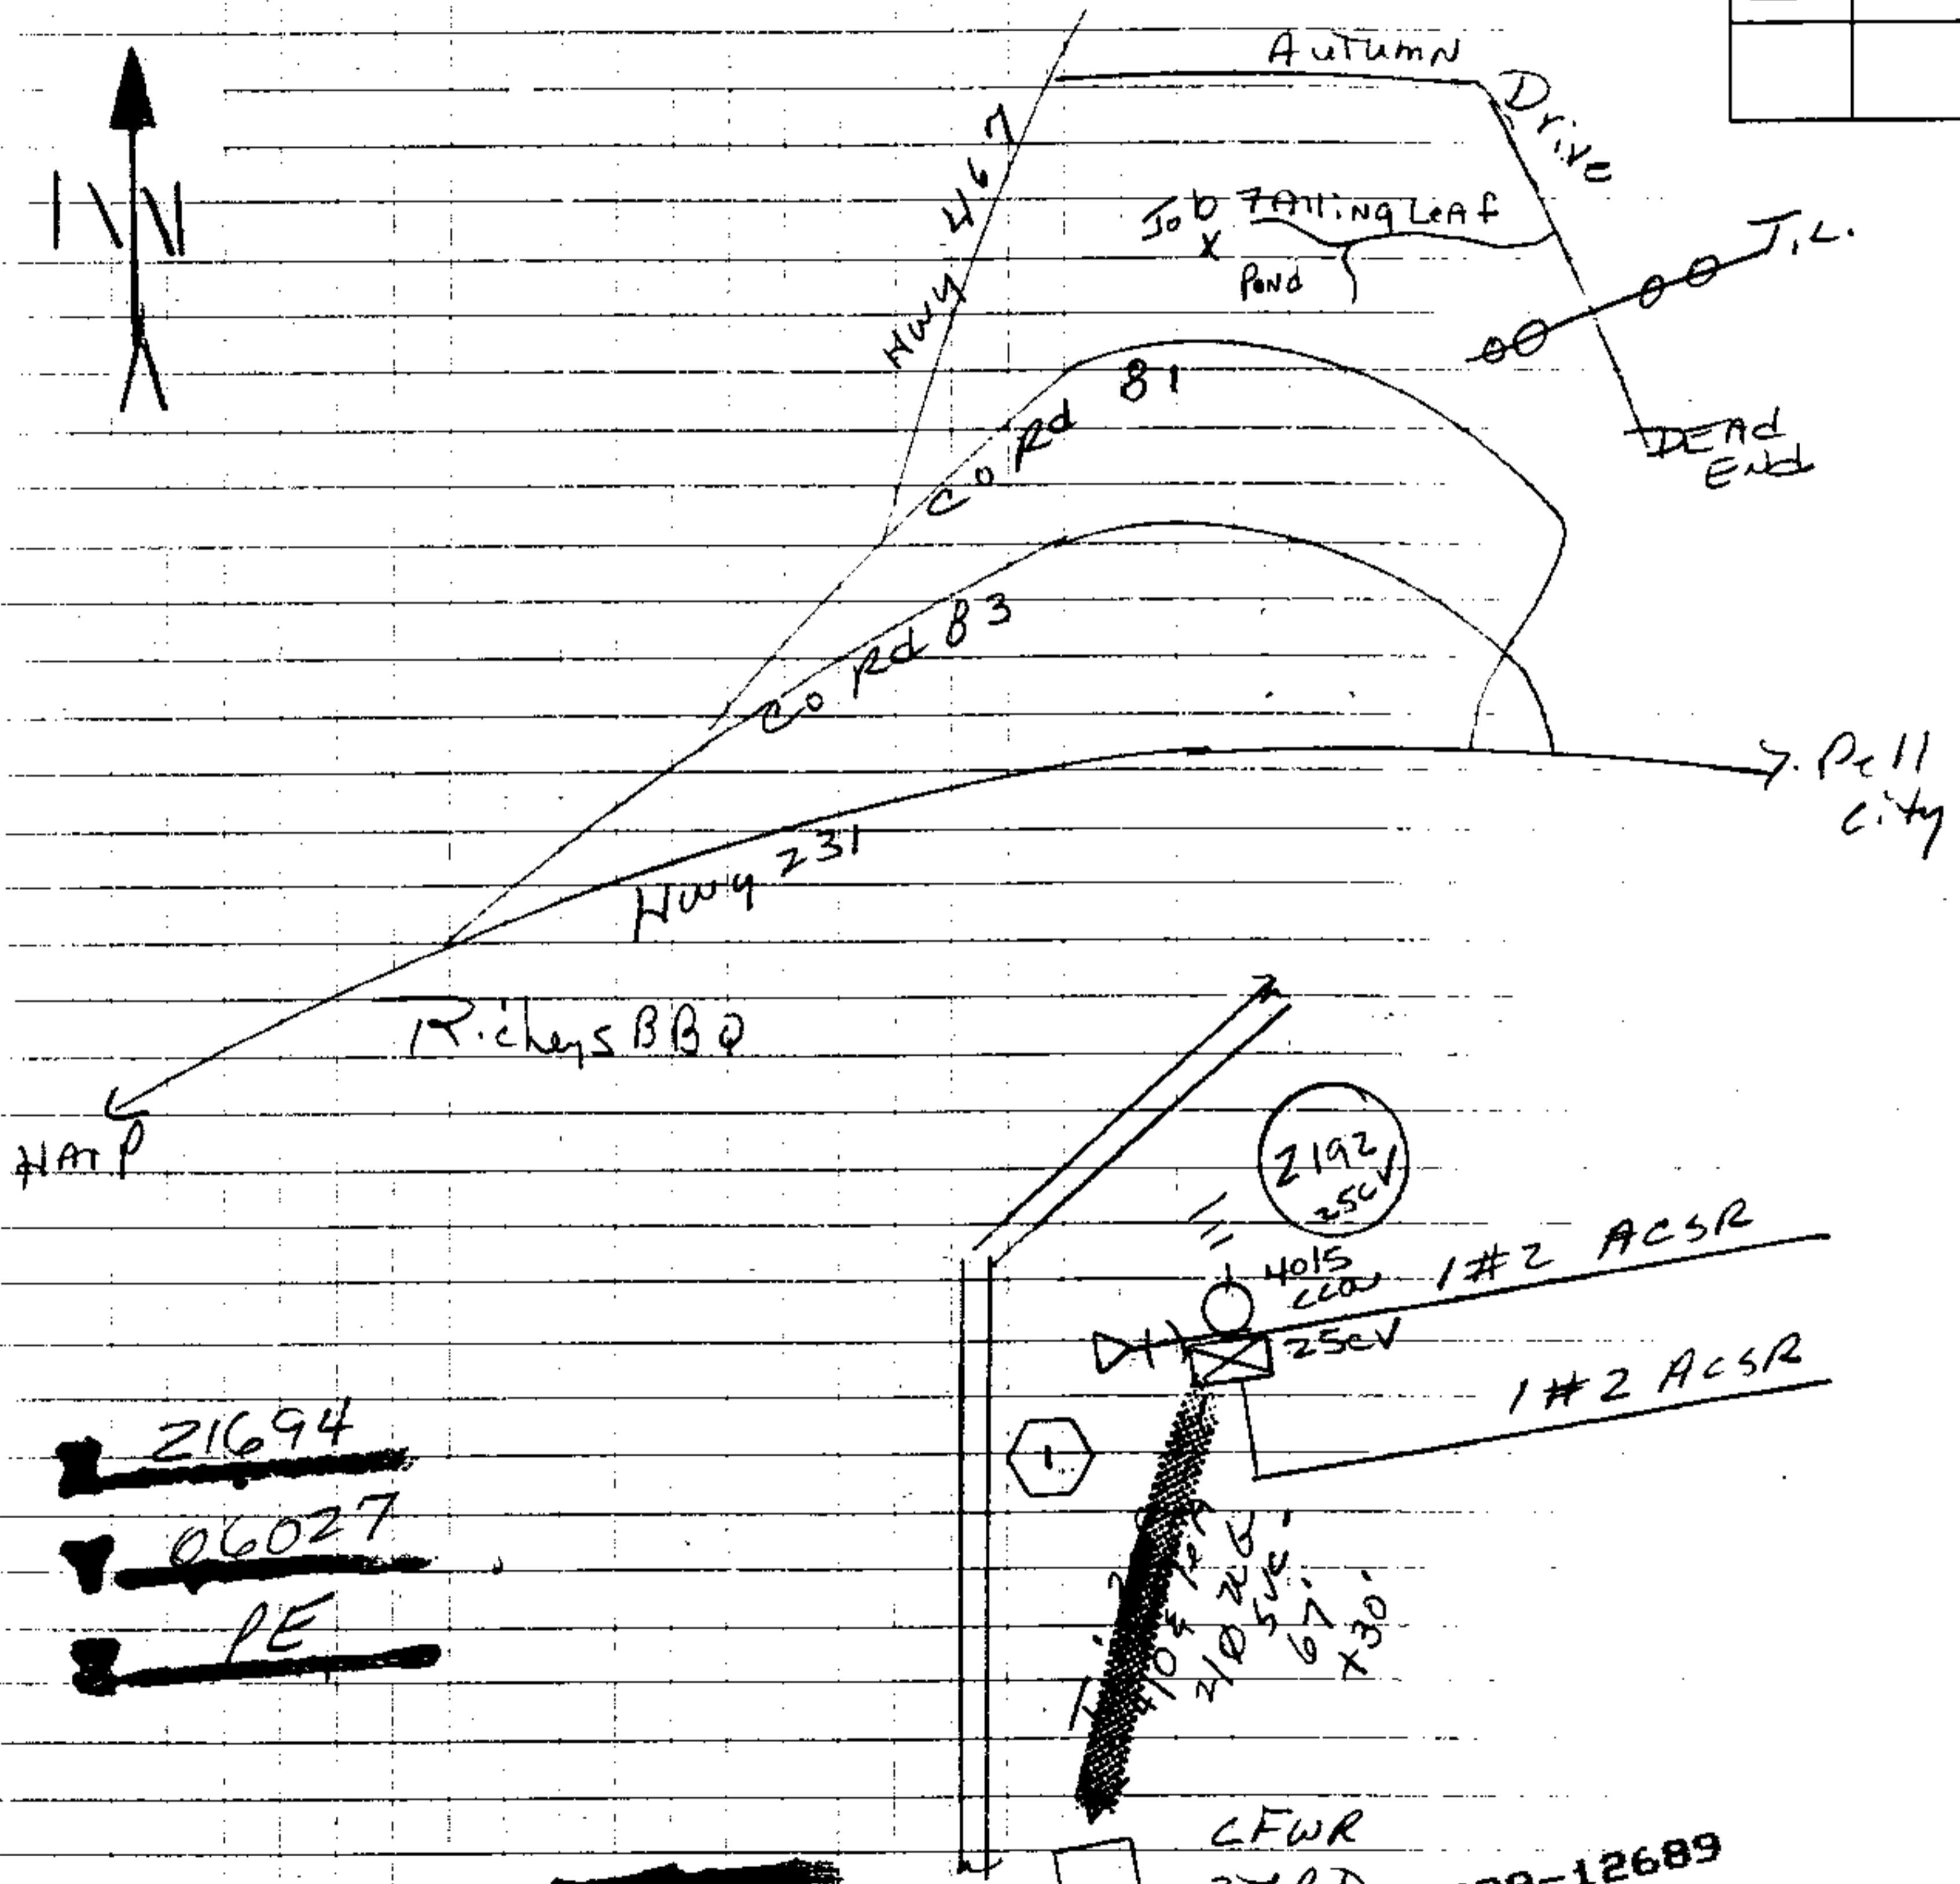 N
Autumn
Drive
Hwy 467
Job Falling Leaf
X
Pond
T.L.
81
Co Rd
DEAd
ENd
Co Rd 83
Pell
City
Hwy 231
Richeys BBQ
HArP
2192
25cv
4015
CCA
1#2 ACSR
25cv
1#2 ACSR
1
21694
06027
PE
67'
X30'
CFWR
-12689